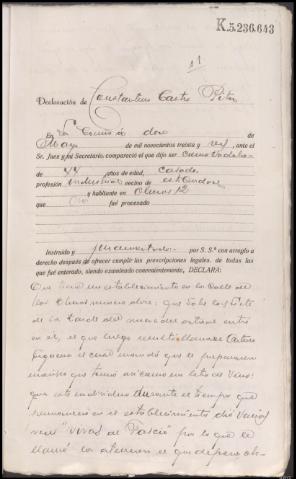 K.5.236.643
11
Declaración de Constantino Castro Pita
En La Coruña a doce de
Mayo de mil novecientos treinta y seis, ante el
Sr. Juez y Secretario compareció el que dijo ser como
de 44 años de edad, casado
profesión industrial vecino de esta Ciudad
y habitante en Olmos 12
que no fué procesado
Instruido y juramentado por S. Sª con arreglo a
derecho después de ofrecer cumplir las prescripciones legales, de todas las
que fué enterado, siendo examinado convenientemente, DECLARA:
Que tiene un establecimiento en la calle de
los Olmos número doce; que sobre las siete
de la tarde del entró
en él, el que luego resultó llamarse Arturo
Figueroa el cual mandó que le preparasen
que tomó así como un de vino:
que este individuo durante el tiempo que
permaneció en el establecimiento dió varios
"vivas al Fascio" por lo que le
llamó la atención el que depone